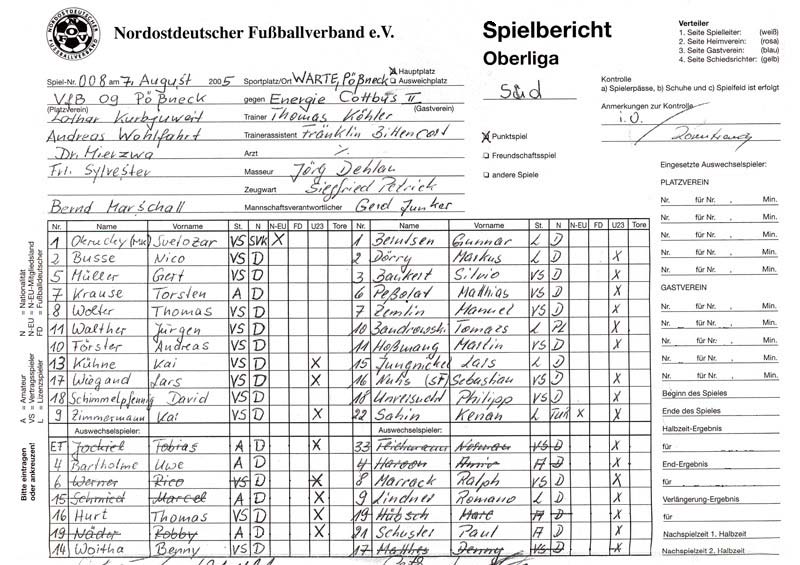 NORDOSTDEUTSCHER FUSSBALLVERBAND
Nordostdeutscher Fußballverband e.V.
Spielbericht
Oberliga
Verteiler
1. Seite Spielleiter: (weiß)
2. Seite Heimverein: (rosa)
3. Seite Gastverein: (blau)
4. Seite Schiedsrichter: (gelb)
Spiel-Nr. 008 am 7. August 2005 Sportplatz/Ort WARTE, Pößneck X Hauptplatz
Ausweichplatz
Süd
Kontrolle
a) Spielerpässe, b) Schuhe und c) Spielfeld ist erfolgt
VfB 09 Pößneck gegen Energie Cottbus II
(Platzverein) (Gastverein)
Anmerkungen zur Kontrolle
i.O.
Lothar Kurbjuweit Trainer Thomas Köhler
Andreas Wohlfahrt Trainerassistent Franklin Bittencort
X Punktspiel
Dr. Mierzwa Arzt
Freundschaftsspiel
Frl. Sylvester Masseur Jörg Dehlau
andere Spiele
Zeugwart Siegfried Petrick
Bernd Marschall Mannschaftsverantwortlicher Gerd Junker
Eingesetzte Auswechselspieler:
PLATZVEREIN
Nr. für Nr. , Min.
Nr. für Nr. , Min.
Nr. für Nr. , Min.
Nr. für Nr. , Min.
Nr. für Nr. , Min.
GASTVEREIN
Nr. für Nr. , Min.
Nr. für Nr. , Min.
Nr. für Nr. , Min.
Nr. für Nr. , Min.
Nr. für Nr. , Min.
Beginn des Spieles
Ende des Spieles
Halbzeit-Ergebnis
für
End-Ergebnis
für
Verlängerung-Ergebnis
für
Nachspielzeit 1. Halbzeit
Nachspielzeit 2. Halbzeit
N = Nationalität
N-EU = N-EU-Mitgliedsland
FD = Fußballdeutscher
A = Amateur
VS = Vertragsspieler
L = Lizenzspieler
Bitte eintragen oder ankreuzen!
Nr. Name Vorname St. N N-EU FD U23 Tore Nr. Name Vorname St. N N-EU FD U23 Tore
1 Okrucky (MK) Svetozar VS SVK X 1 Berntsen Gunnar L D
2 Busse Nico VS D 2 Dörry Markus L D X
5 Müller Gert VS D 3 Bankert Silvio VS D X
7 Krause Torsten A D 6 Peßolat Matthias VS D X
8 Wolter Thomas VS D 7 Zemlin Manuel VS D X
11 Walther Jürgen VS D 10 Bandrowski Tomacs L PL X
10 Förster Andreas VS D 11 Hoßmang Martin VS D X
13 Kühne Kai VS D X 15 Jungnickel Lars L D
17 Wiegand Lars VS D X 16 Kuhs (SF) Sebastian VS D X
18 Schimmelpfennig David VS D 18 Unversucht Philipp VS D X
9 Zimmermann Kai VS D X 22 Sahin Kenan L Tür X X
Auswechselspieler: Auswechselspieler:
ET Jockiel Tobias A D X 33 Teichmann Norman VS D X
4 Bartholme Uwe A D 4 Haroon Amir A D X
6 Werner Rico VS D X 8 Marrack Ralph VS D X
15 Schmied Marcel A D X 9 Lindner Romano L D X
16 Hurt Thomas VS D X 19 Hübsch Marc A D X
19 Näder Robby A D X 21 Schuster Paul A D X
14 Woitha Benny VS D 17 Matthes Denny VS D X